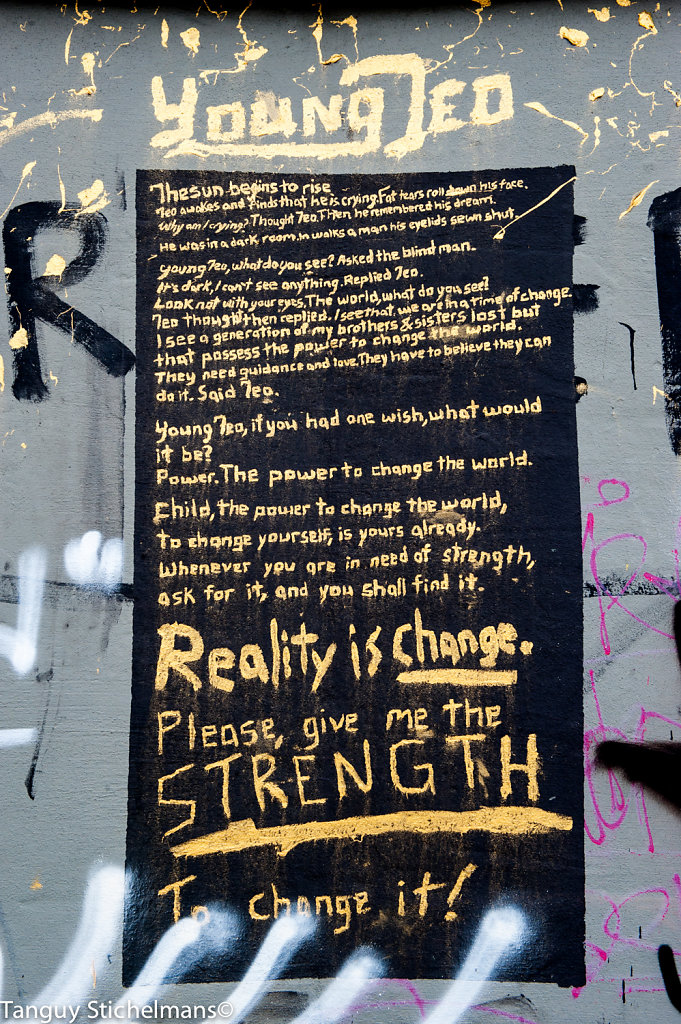 Young Teo
The sun begins to rise
Teo awakes and finds that he is crying. Fat tears roll down his face.
Why am I crying? Thought Teo. Then he remembered his dream.
He was in a dark room. In walks a man his eyelids sewn shut.
Young Teo, what do you see? Asked the blind man.
It's dark, I can't see anything. Replied Teo.
Look not with your eyes. The world, what do you see?
Teo thought then replied. I see that we are in a time of change.
I see a generation of my brothers & sisters lost but
that possess the power to change the world.
They need guidance and love. They have to believe they can
do it. Said Teo.
Young Teo, if you had one wish, what would
it be?
Power. The power to change the world.
Child, the power to change the world,
To change yourself, is yours already.
Whenever you are in need of strength,
ask for it, and you shall find it.
Reality is change.
Please, give me the
STRENGTH
To change it!
R
Tanguy Stichelmans©